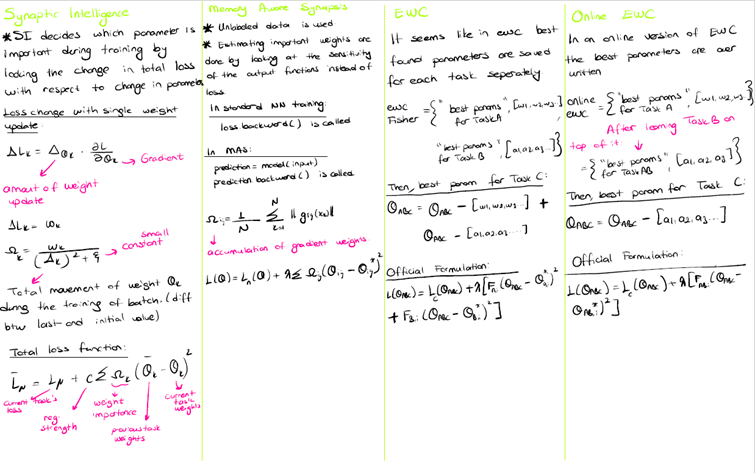 Synaptic Intelligence
*SI decides which parameter is
important during training by
looking the change in total loss
with respect to change in parameter
Loss change with single weight
update:
ΔLk = Δθk · ∂L/∂θk → Gradient
amount of weight
update
ΔLk = wk
Ωk = wk / ((Δk)² + ξ) → small
constant
Total movement of weight θk
during the training of batch. (diff
btw last and initial value)
Total loss function:
L̄μ = Lμ + c Σ Ωk (θ̄k - θk)²
current task's
loss
reg.
strength
weight
importance
previous task
weights
current
task
weights
Memory Aware Synapsis
* Unlabeled data is used
* Estimating important weights are
done by looking at the sensitivity
of the output functions instead of
loss
In standard NN training:
loss.backward() is called
In MAS:
prediction = model(input)
prediction.backward() is called
Ωij = 1/N Σ k=1 N || gij(xk) ||
accumulation of gradient weights.
L(θ) = Ln(θ) + λ Σ Ωij (θij - θij*)²
EWC
It seems like in ewc best
found parameters are saved
for each task seperately
ewc
Fisher = { "best params for Task A", [w1, w2, w3..],
"best params for Task B", [a1, a2, a3...] }
Then, best param for Task C:
θABC = θABC - [w1, w2, w3...] +
θABC - [a1, a2, a3...]
Official Formulation:
L(θABC) = Lc(θABC) + λ[FA (θABC - θA*)²
+ FB (θABC - θB*)²]
Online EWC
In an online version of EWC
the best parameters are over
written
online
ewc = { "best params" for Task A, [w1, w2, w3..] }
After learning Task B on
top of it: ↓
= { "best params" for Task AB, [a1, a2, a3] }
Then, best param for Task C:
θABC = θABC - [a1, a2, a3...]
Official Formulation:
L(θABC) = Lc(θABC) + λ[FAB (θABC -
θAB*)²]